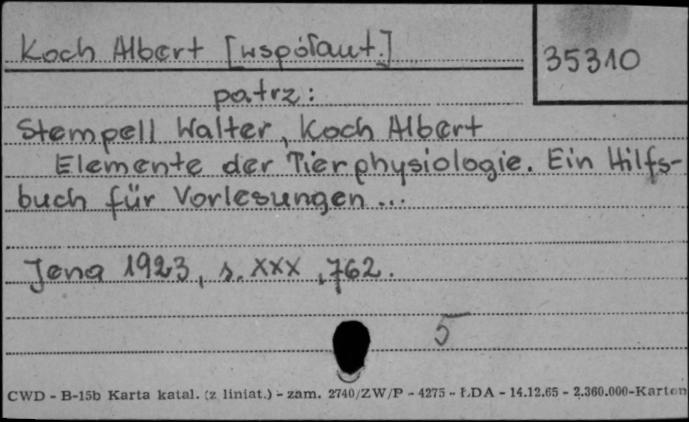 Koch Albert [współaut.]
35310
patrz:
Stempell Walter, Koch Albert
Elemente der Tierphysiologie. Ein Hilfs-
buch für Vorlesungen...
Jena 1923, s. XXX, 762.
5
CWD - B-15b Karta katal. (z liniat.) - zam. 2740/ZW/P - 4275 - ŁDA - 14.12.65 - 2.360.000-Karton